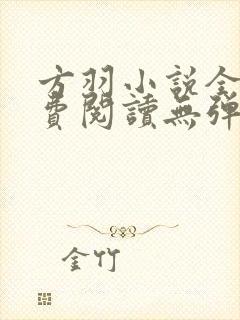 方羽小說全
費閱讀無彈
金竹